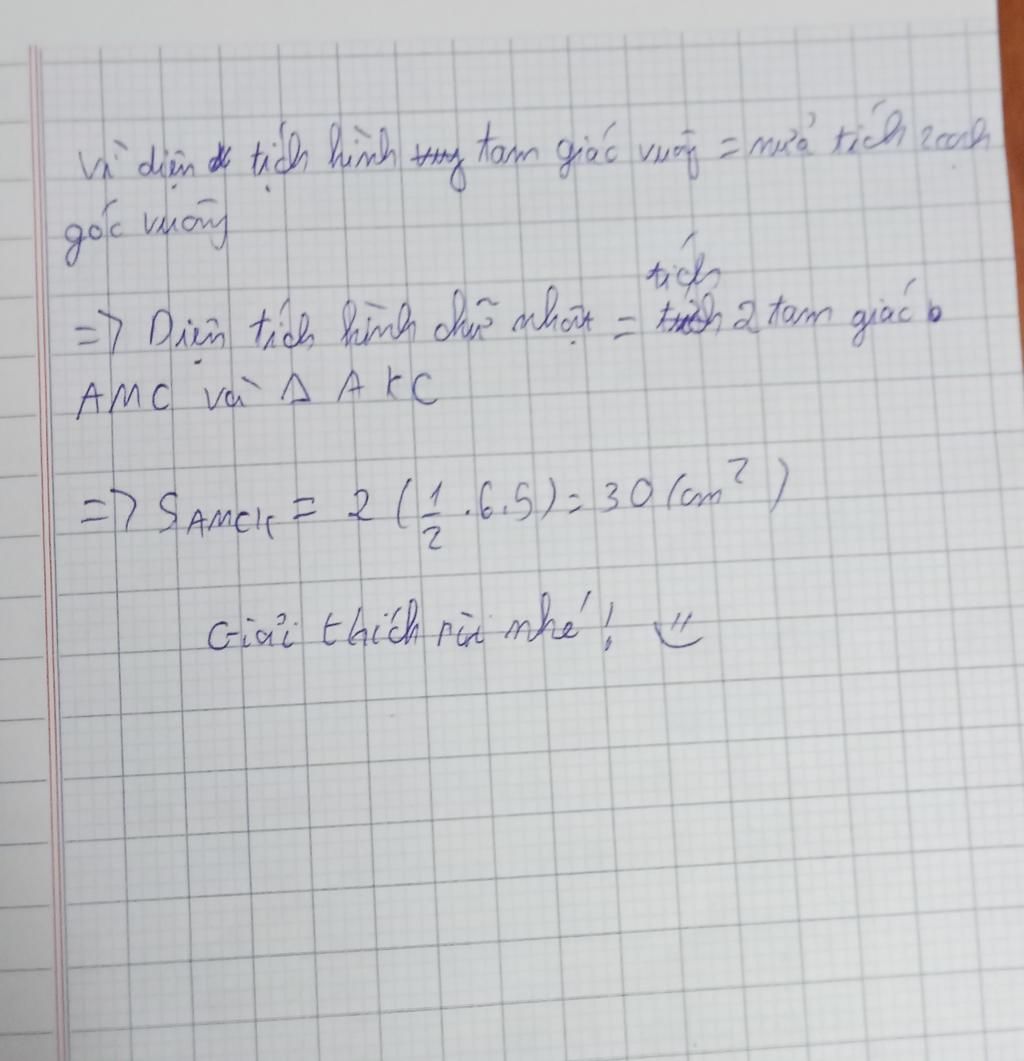 Vì diện tích hình tam giác vuông = nửa tích 2 cạnh
góc vuông
=> Diện tích hình chữ nhật = tích 2 tam giác
AMC và Δ AKC
=> SAMCK = 2 (1/2 .6.5) = 30 (cm²)
Giải thích rồi nhé! =)